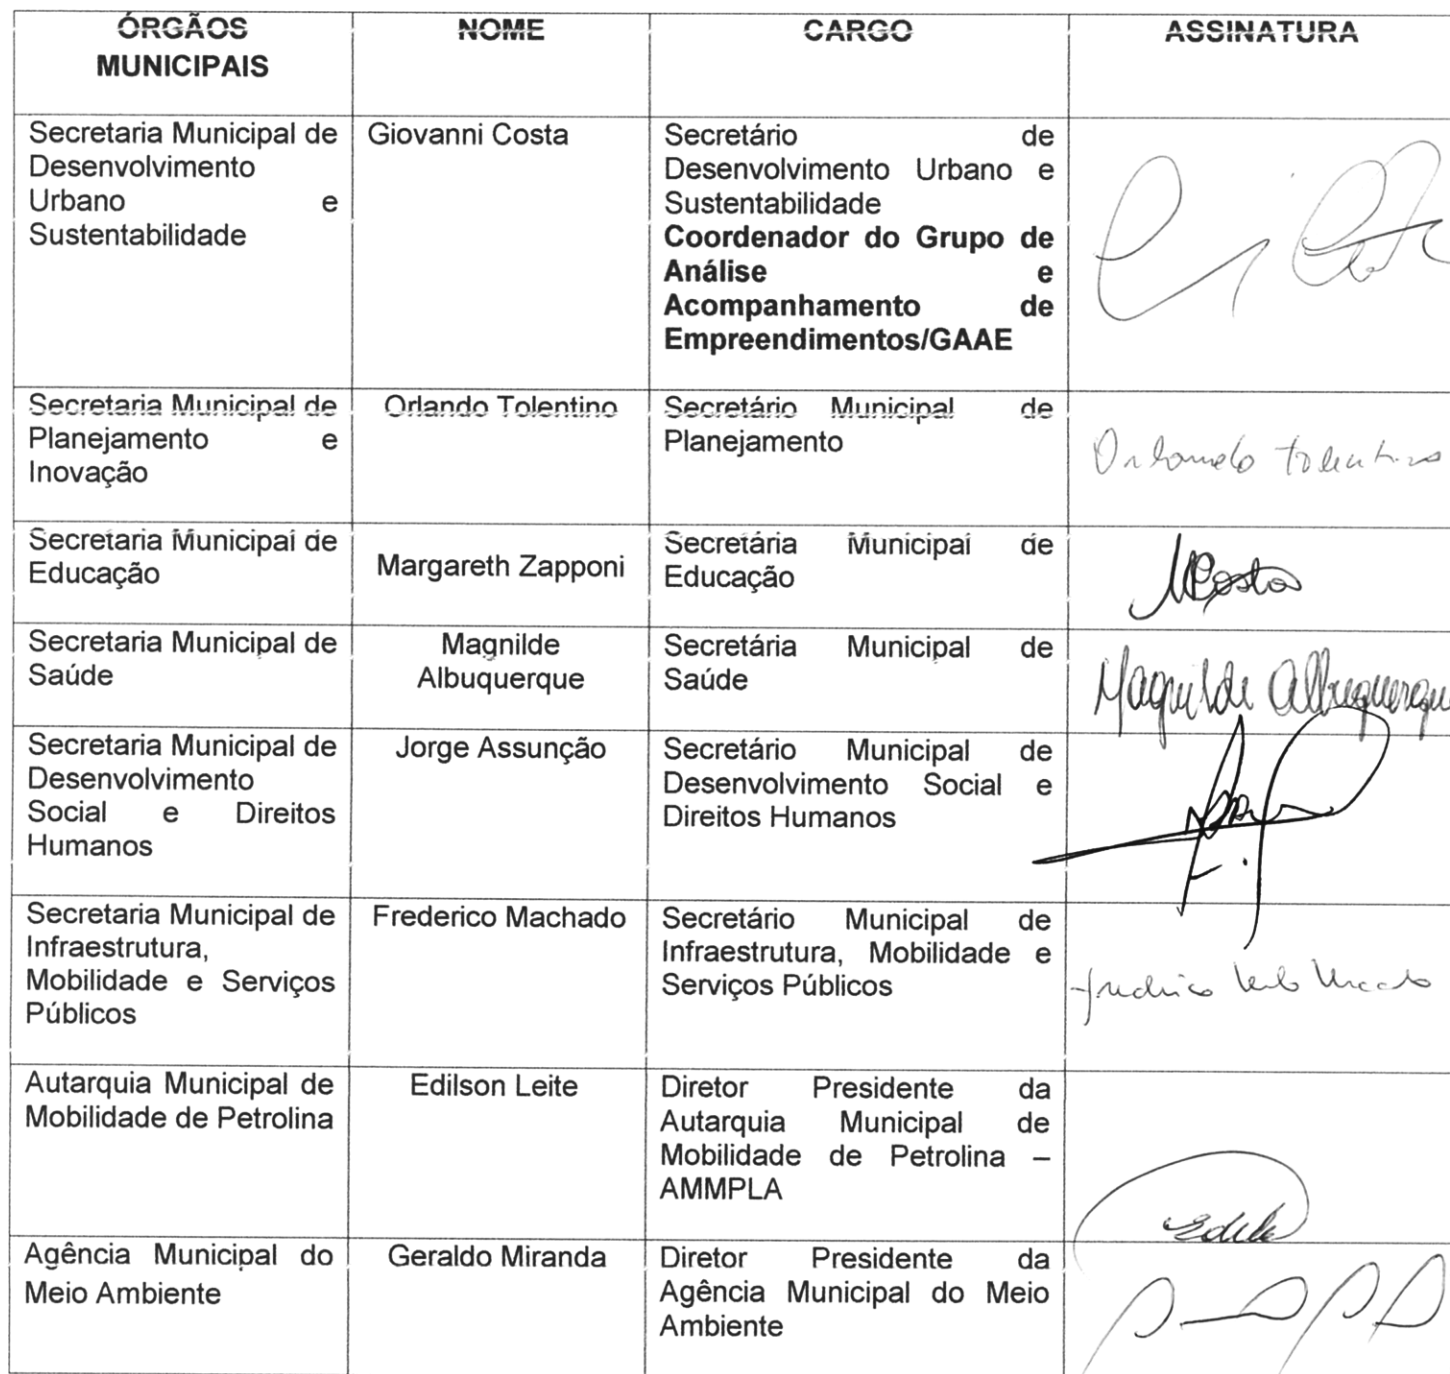 ÓRGÃOS
MUNICIPAIS
NOME
CARGO
ASSINATURA
Secretaria Municipal de
Desenvolvimento
Urbano e
Sustentabilidade
Giovanni Costa
Secretário de
Desenvolvimento Urbano e
Sustentabilidade
Coordenador do Grupo de
Análise e
Acompanhamento de
Empreendimentos/GAAE
Secretaria Municipal de
Planejamento e
Inovação
Orlando Tolentino
Secretário Municipal de
Planejamento
Orlando Tolentino
Secretaria Municipal de
Educação
Margareth Zapponi
Secretária Municipal de
Educação
Secretaria Municipal de
Saúde
Magnilde
Albuquerque
Secretária Municipal de
Saúde
Magnilde Albuquerque
Secretaria Municipal de
Desenvolvimento
Social e Direitos
Humanos
Jorge Assunção
Secretário Municipal de
Desenvolvimento Social e
Direitos Humanos
Secretaria Municipal de
Infraestrutura,
Mobilidade e Serviços
Públicos
Frederico Machado
Secretário Municipal de
Infraestrutura, Mobilidade e
Serviços Públicos
Autarquia Municipal de
Mobilidade de Petrolina
Edilson Leite
Diretor Presidente da
Autarquia Municipal de
Mobilidade de Petrolina –
AMMPLA
Agência Municipal do
Meio Ambiente
Geraldo Miranda
Diretor Presidente da
Agência Municipal do Meio
Ambiente